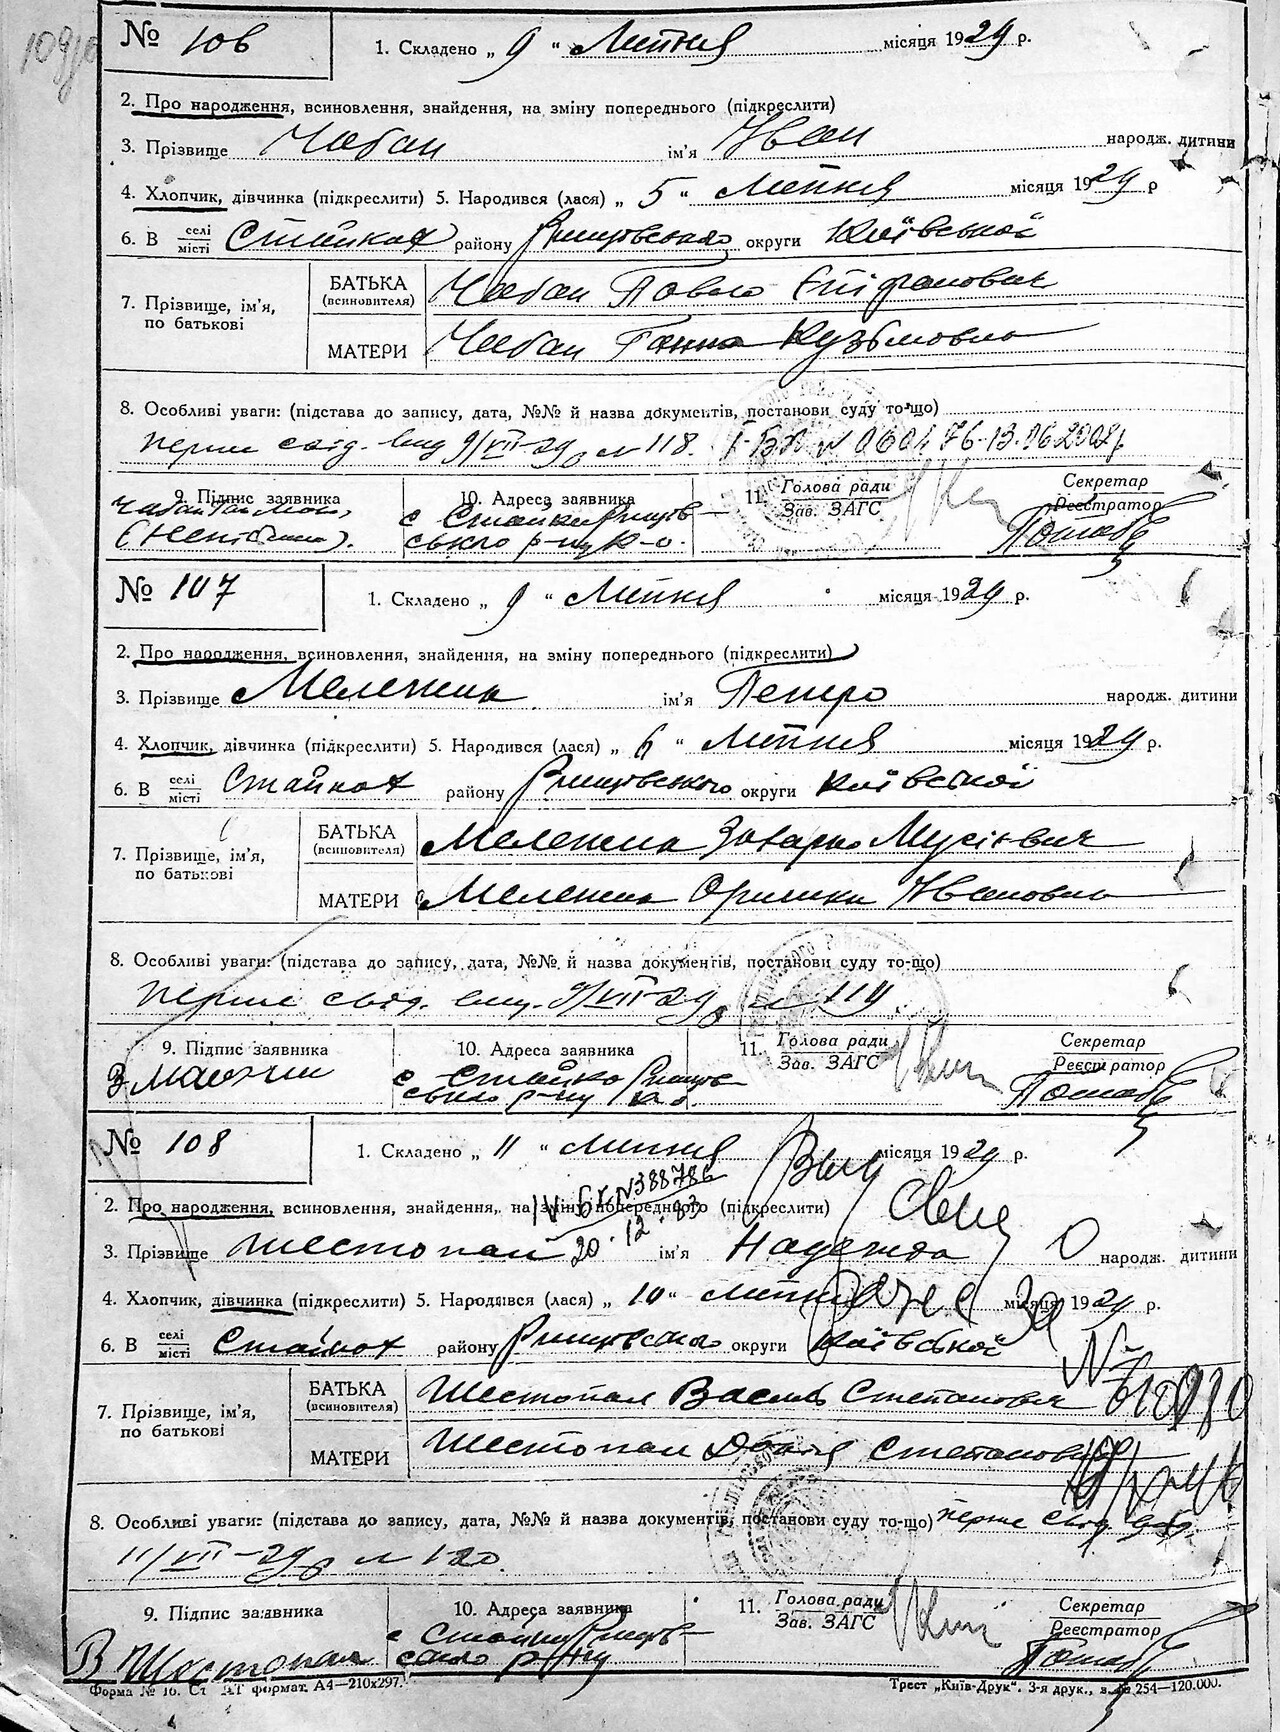 № 106
1. Складено „ 9 “ Липня місяця 1929 р.
2. Про народження, всиновлення, знайдення, на зміну попереднього (підкреслити)
3. Прізвище Чабан ім'я Иван народж. дитини
4. Хлопчик, дівчинка (підкреслити) 5. Народився (лася) „ 5 “ Липня місяця 1929 р
6. В селі місті Стайках району Ржищівського округи Київської
7. Прізвище, ім'я, по батькові
БАТЬКА (всиновителя) Чабан Павло Єпіфанович
МАТЕРИ Чабан Ганна Кузьмовна
8. Особливі уваги: (підстава до запису, дата, №№ й назва документів, постанови суду то-що)
перше свід. вид 9/VII-29 р № 118. І-БК № 060476-13.06.2002р
9. Підпис заявника
10. Адреса заявника
с Стайки Ржищів-
ського р-ну К-о.
11. Голова ради
Зав. ЗАГС
Секретар
Реєстратор
№ 107
1. Складено „ 9 “ Липня місяця 1929 р.
2. Про народження, всиновлення, знайдення, на зміну попереднього (підкреслити)
3. Прізвище ім'я Петро народж. дитини
4. Хлопчик, дівчинка (підкреслити) 5. Народився (лася) „ 6 “ Липня місяця 1929 р.
6. В селі місті Стайках району Ржищівського округи Київської
7. Прізвище, ім'я, по батькові
БАТЬКА (всиновителя) Захарко Мусієвич
МАТЕРИ Оришка Ивановна
8. Особливі уваги: (підстава до запису, дата, №№ й назва документів, постанови суду то-що)
перше свід. вид. 9/VII-29 р № 119
9. Підпис заявника
10. Адреса заявника
с Стайки Ржищів-
ського р-ну К.о.
11. Голова ради
Зав. ЗАГС
Секретар
Реєстратор
№ 108
1. Складено „ 11 “ Липня місяця 1929 р.
IV-БК №388786
20.12.83
2. Про народження, всиновлення, знайдення, на зміну попереднього (підкреслити)
3. Прізвище Шестопал ім'я Надежда народж. дитини
4. Хлопчик, дівчинка (підкреслити) 5. Народився (лася) „ 10 “ Липня місяця 1929 р.
6. В селі місті Стайках району Ржищівського округи Київської
7. Прізвище, ім'я, по батькові
БАТЬКА (всиновителя) Шестопал Василь Степанович
МАТЕРИ Шестопал Степановна
8. Особливі уваги: (підстава до запису, дата, №№ й назва документів, постанови суду то-що) перше свід. вид
11/VII-29 р № 120.
9. Підпис заявника
В Шестопал
10. Адреса заявника
с Стайки Ржищів-
ського р-ну
11. Голова ради
Зав. ЗАГС
Секретар
Реєстратор
Форма № 16. Ст. А1 формат. А4—210х297.
Трест „Київ-Друк“. 3-я друк., 254—120.000.